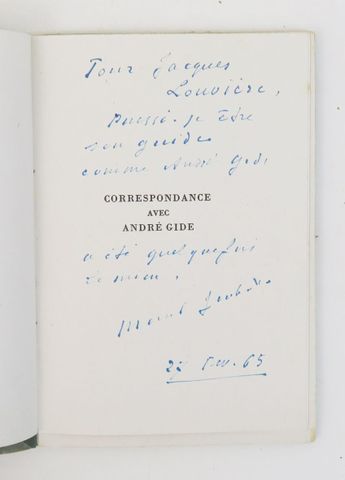 Pour Jacques
Louvière,
Puissé-je être
son guide
comme André Gide
CORRESPONDANCE
AVEC
ANDRÉ GIDE
a été quelquefois
le mien.
Marcel Jouhandeau
27 65